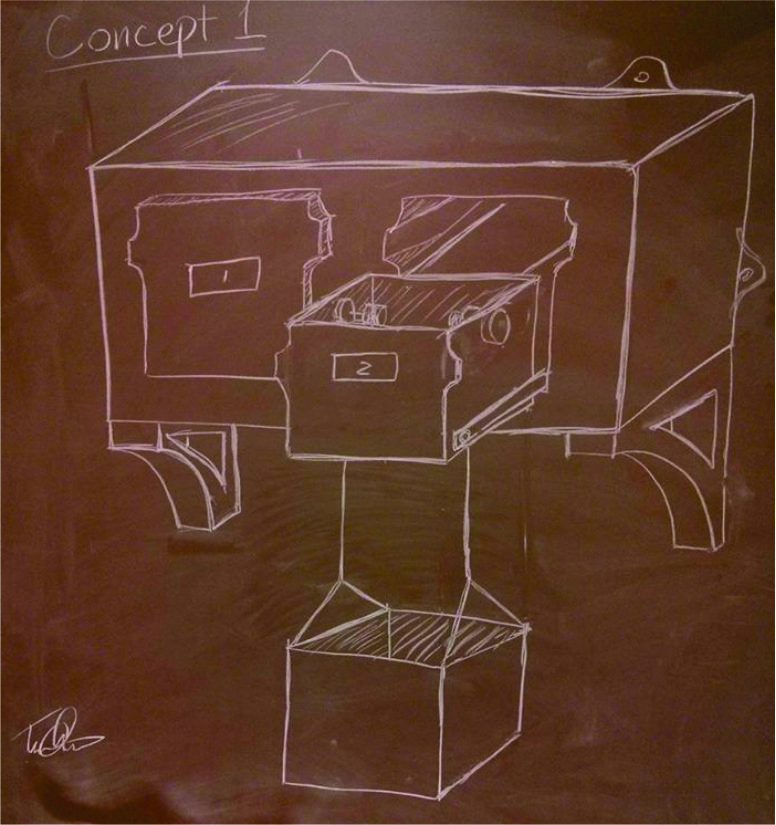 Concept 1
1
2